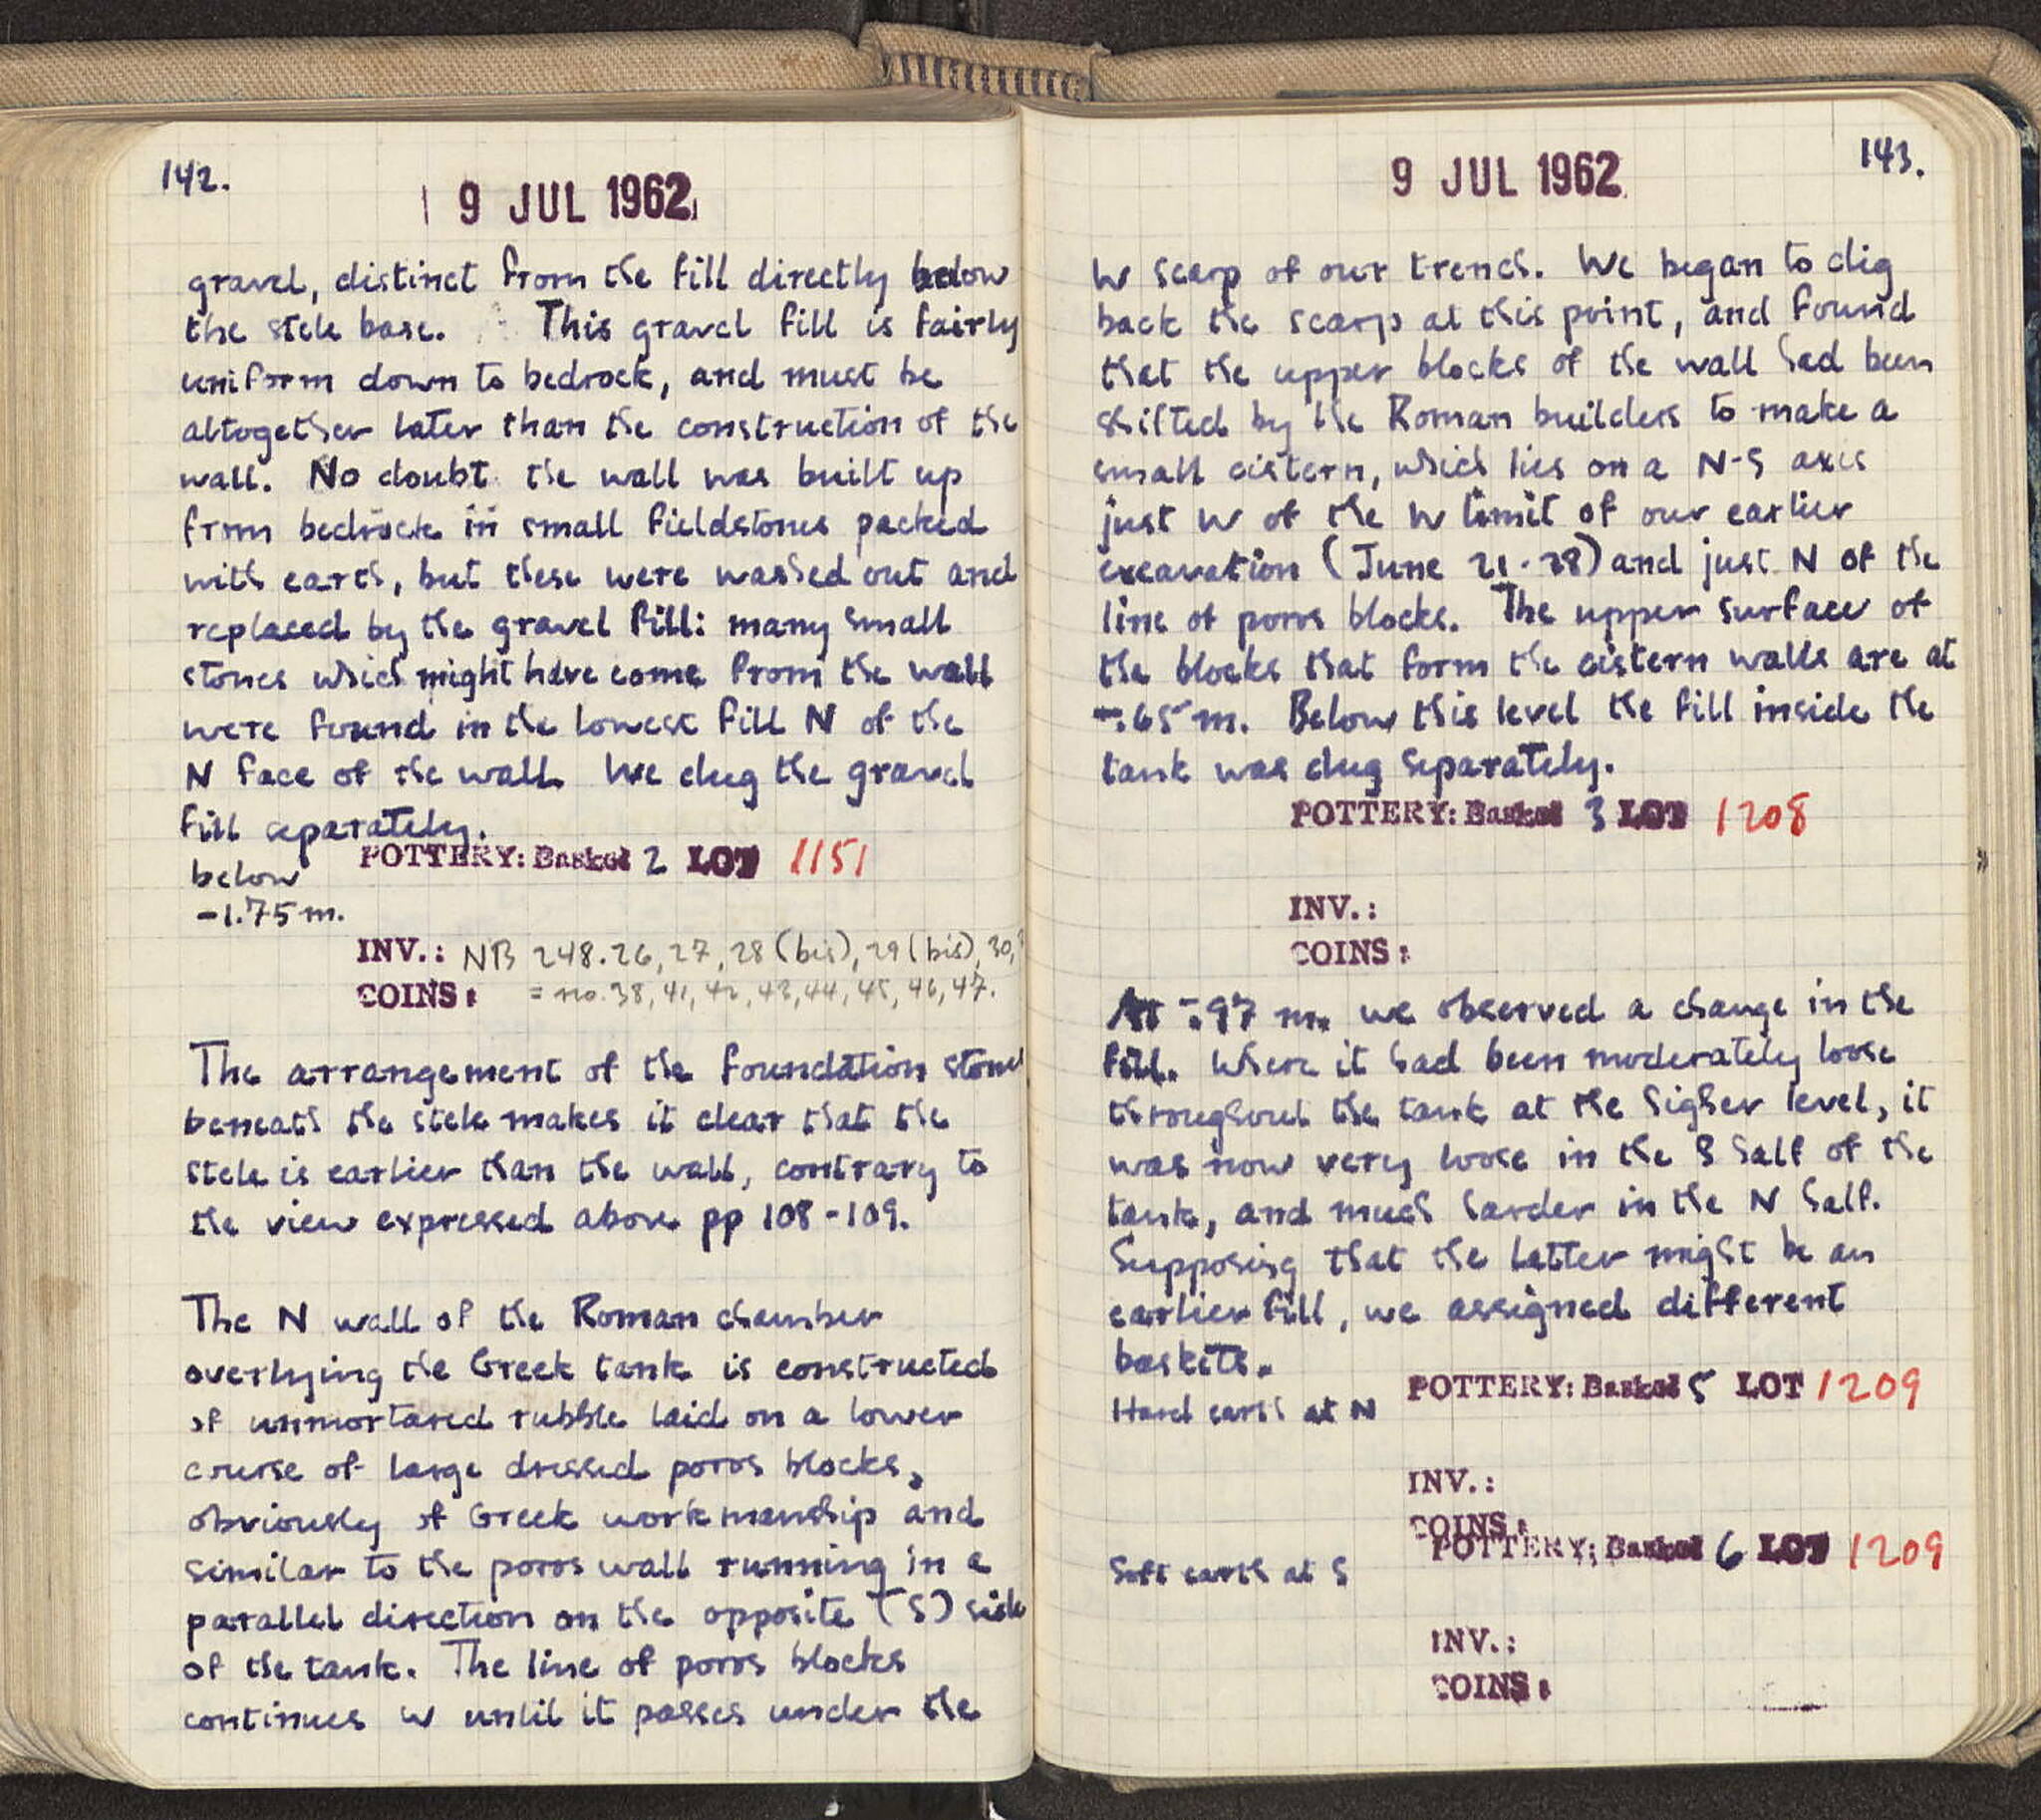 142.
9 JUL 1962
gravel, distinct from the fill directly below
the stele base. This gravel fill is fairly
uniform down to bedrock, and must be
altogether later than the construction of the
wall. No doubt the wall was built up
from bedrock in small fieldstones packed
with earth, but these were washed out and
replaced by the gravel fill: many small
stones which might have come from the wall
were found in the lowest fill N of the
N face of the wall. We dug the gravel
fill separately.
below
-1.75 m.
POTTERY: Basket 2 LOT 1151
INV.: NB 248.26, 27, 28 (bis), 29 (bis), 30,
COINS: = no. 38, 41, 42, 43, 44, 45, 46, 47.
The arrangement of the foundation stones
beneath the stele makes it clear that the
stele is earlier than the wall, contrary to
the view expressed above pp 108-109.
The N wall of the Roman chamber
overlying the Greek tank is constructed
of unmortared rubble laid on a lower
course of large dressed poros blocks,
obviously of Greek workmanship and
similar to the poros wall running in a
parallel direction on the opposite (S) side
of the tank. The line of poros blocks
continues W until it passes under the
143.
9 JUL 1962
W scarp of our trench. We began to dig
back the scarp at this point, and found
that the upper blocks of the wall had been
shifted by the Roman builders to make a
small cistern, which lies on a N-S axis
just W of the W limit of our earlier
excavation (June 21-28) and just N of the
line of poros blocks. The upper surface of
the blocks that form the cistern walls are at
-.65 m. Below this level the fill inside the
tank was dug separately.
POTTERY: Basket 3 LOT 1208
INV.:
COINS:
At -.97 m. we observed a change in the
fill. Where it had been moderately loose
throughout the tank at the higher level, it
was now very loose in the S half of the
tank, and much harder in the N half.
Supposing that the latter might be an
earlier fill, we assigned different
baskets.
Hard earth at N POTTERY: Basket 5 LOT 1209
INV.:
COINS:
Soft earth at S POTTERY: Basket 6 LOT 1209
INV.:
COINS: